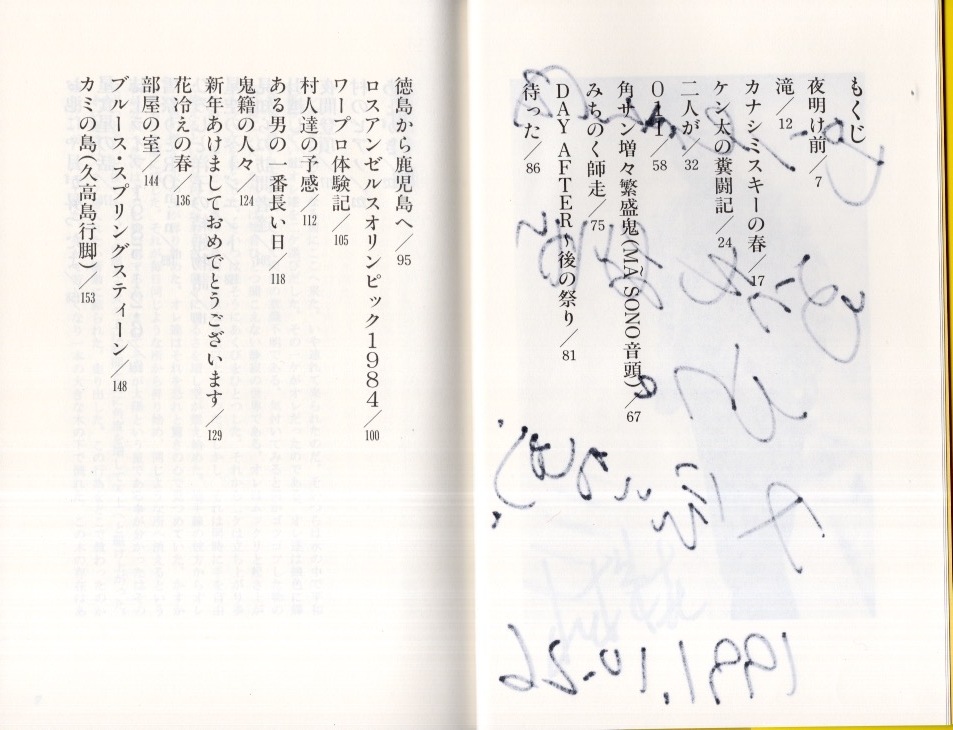 もくじ
夜明け前／7
滝／12
カナシミスキーの春／17
ケン太の糞闘記／24
二人が／32
011／58
角サン増々繁盛鬼(MA SONO音頭)／67
みちのく師走／75
DAY AFTER〜後の祭り／81
待った／86
徳島から鹿児島へ／95
ロスアンゼルスオリンピック1984／100
ワープロ体験記／105
村人達の予感／112
ある男の一番長い日／118
鬼籍の人々／124
新年あけましておめでとうございます／129
花冷えの春／136
部屋の室／144
ブルース・スプリングスティーン／148
カミの島(久高島行脚)／153
1991.10.26